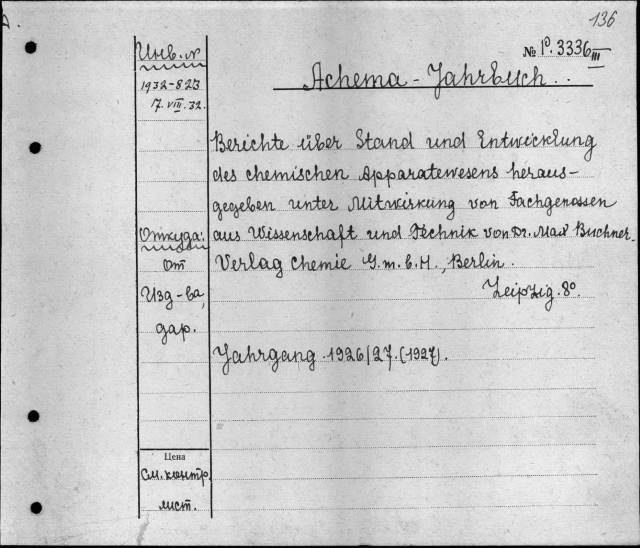 136
№ P. 3336 III
Achema - Jahrbuch.
Инв. №
1932-823
17. VIII. 32.
Berichte über Stand und Entwicklung
des chemischen Apparatewesens heraus-
gegeben unter Mitwirkung von Fachgenossen
aus Wissenschaft und Technik von Dr. Max Buchner.
Verlag Chemie G.m.b.H., Berlin.
Leipzig. 8°.
Откуда:
От
Изд-ва,
дар.
Jahrgang 1926/27. (1927).
Цена
См. контр.
лист.